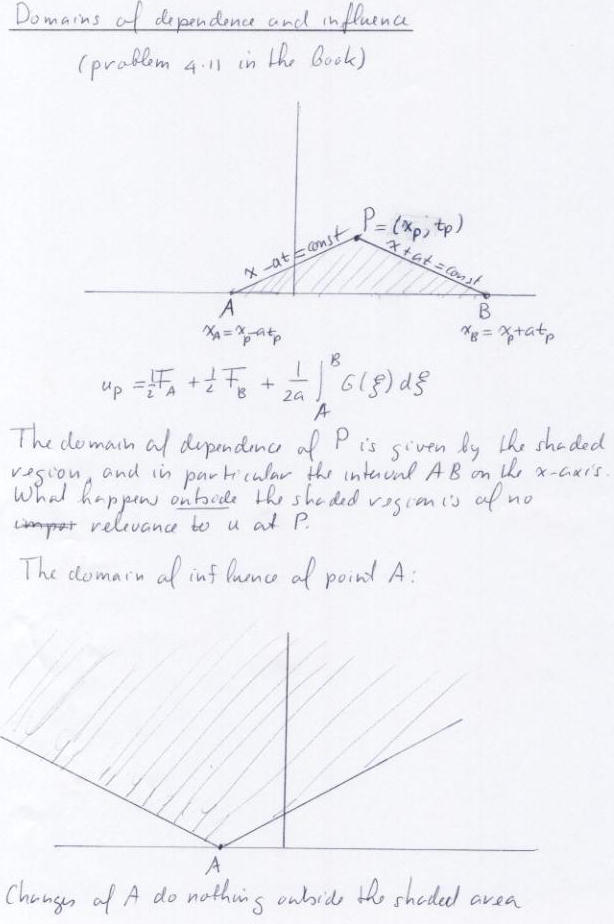 Domains of dependence and influence
(problem 4.11 in the book)
P = (x_p, t_p)
x - at = const
x + at = const
A
B
x_A = x_p - at_p
x_B = x_p + at_p
u_p = ½ F_A + ½ F_B + 1/2a ∫_A^B G(ξ) dξ
The domain of dependence of P is given by the shaded
region, and in particular the interval AB on the x-axis.
What happens outside the shaded region is of no
relevance to u at P.
The domain of influence of point A:
A
Changes of A do nothing outside the shaded area